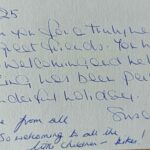 25
you for a truly he
great friends. You h
welcoming and hel
has been pa
derful holiday.
from all
So welcoming to all the
little children - bikes!